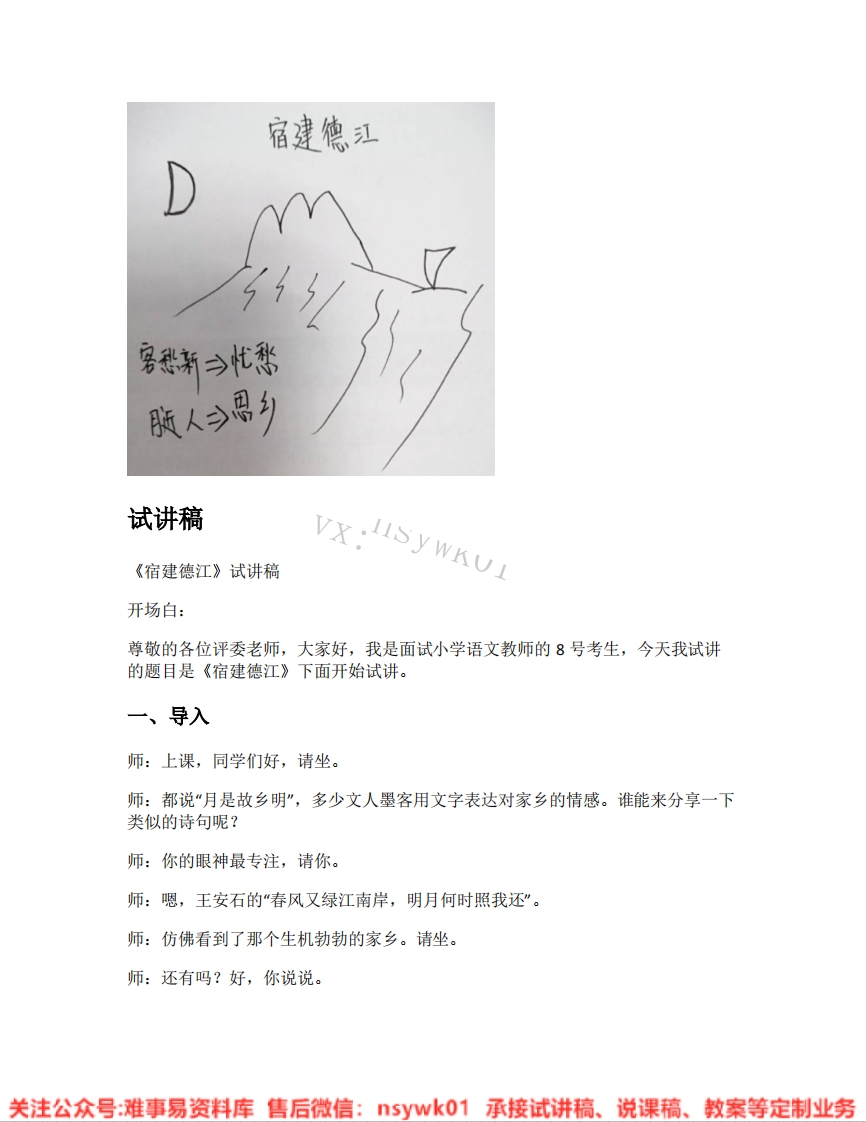 宿建德江
客愁新⇒忧愁
人⇒思乡
试讲稿
VX:nsywk01
《宿建德江》试讲稿
开场白：
尊敬的各位评委老师，大家好，我是面试小学语文教师的 8 号考生，今天我试讲
的题目是《宿建德江》下面开始试讲。
一、导入
师：上课，同学们好，请坐。
师：都说“月是故乡明”，多少文人墨客用文字表达对家乡的情感。谁能来分享一下
类似的诗句呢？
师：你的眼神最专注，请你。
师：嗯，王安石的“春风又绿江南岸，明月何时照我还”。
师：仿佛看到了那个生机勃勃的家乡。请坐。
师：还有吗？好，你说说。
关注公众号:难事易资料库 售后微信：nsywk01 承接试讲稿、说课稿、教案等定制业务